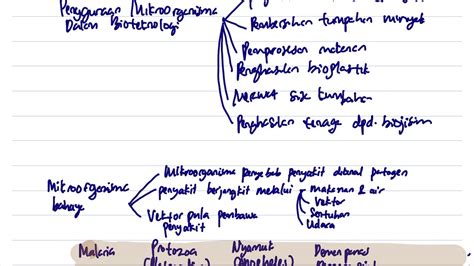 Penggunaan Mikroorganisma
Dalam Bioteknologi
Pembersihan tumpahan minyak
Pemprosesan makanan
Penghasilan bioplastik
Merawat sisa tumbahan
Penghasilan tenaga dpd. biojisim
Mikroorganisma penyebab penyakit dikenal patogen
Mikroorganisma
bahaya
penyakit berjangkit melalui makanan & air
Vektor
Sentuhan
Udara
Vektor pula pembawa
penyakit
Malaria Protozoa Nyamuk Demam panas